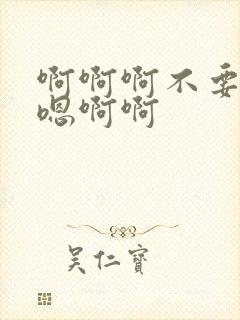 啊啊啊不要
嗯啊啊
吴仁宝